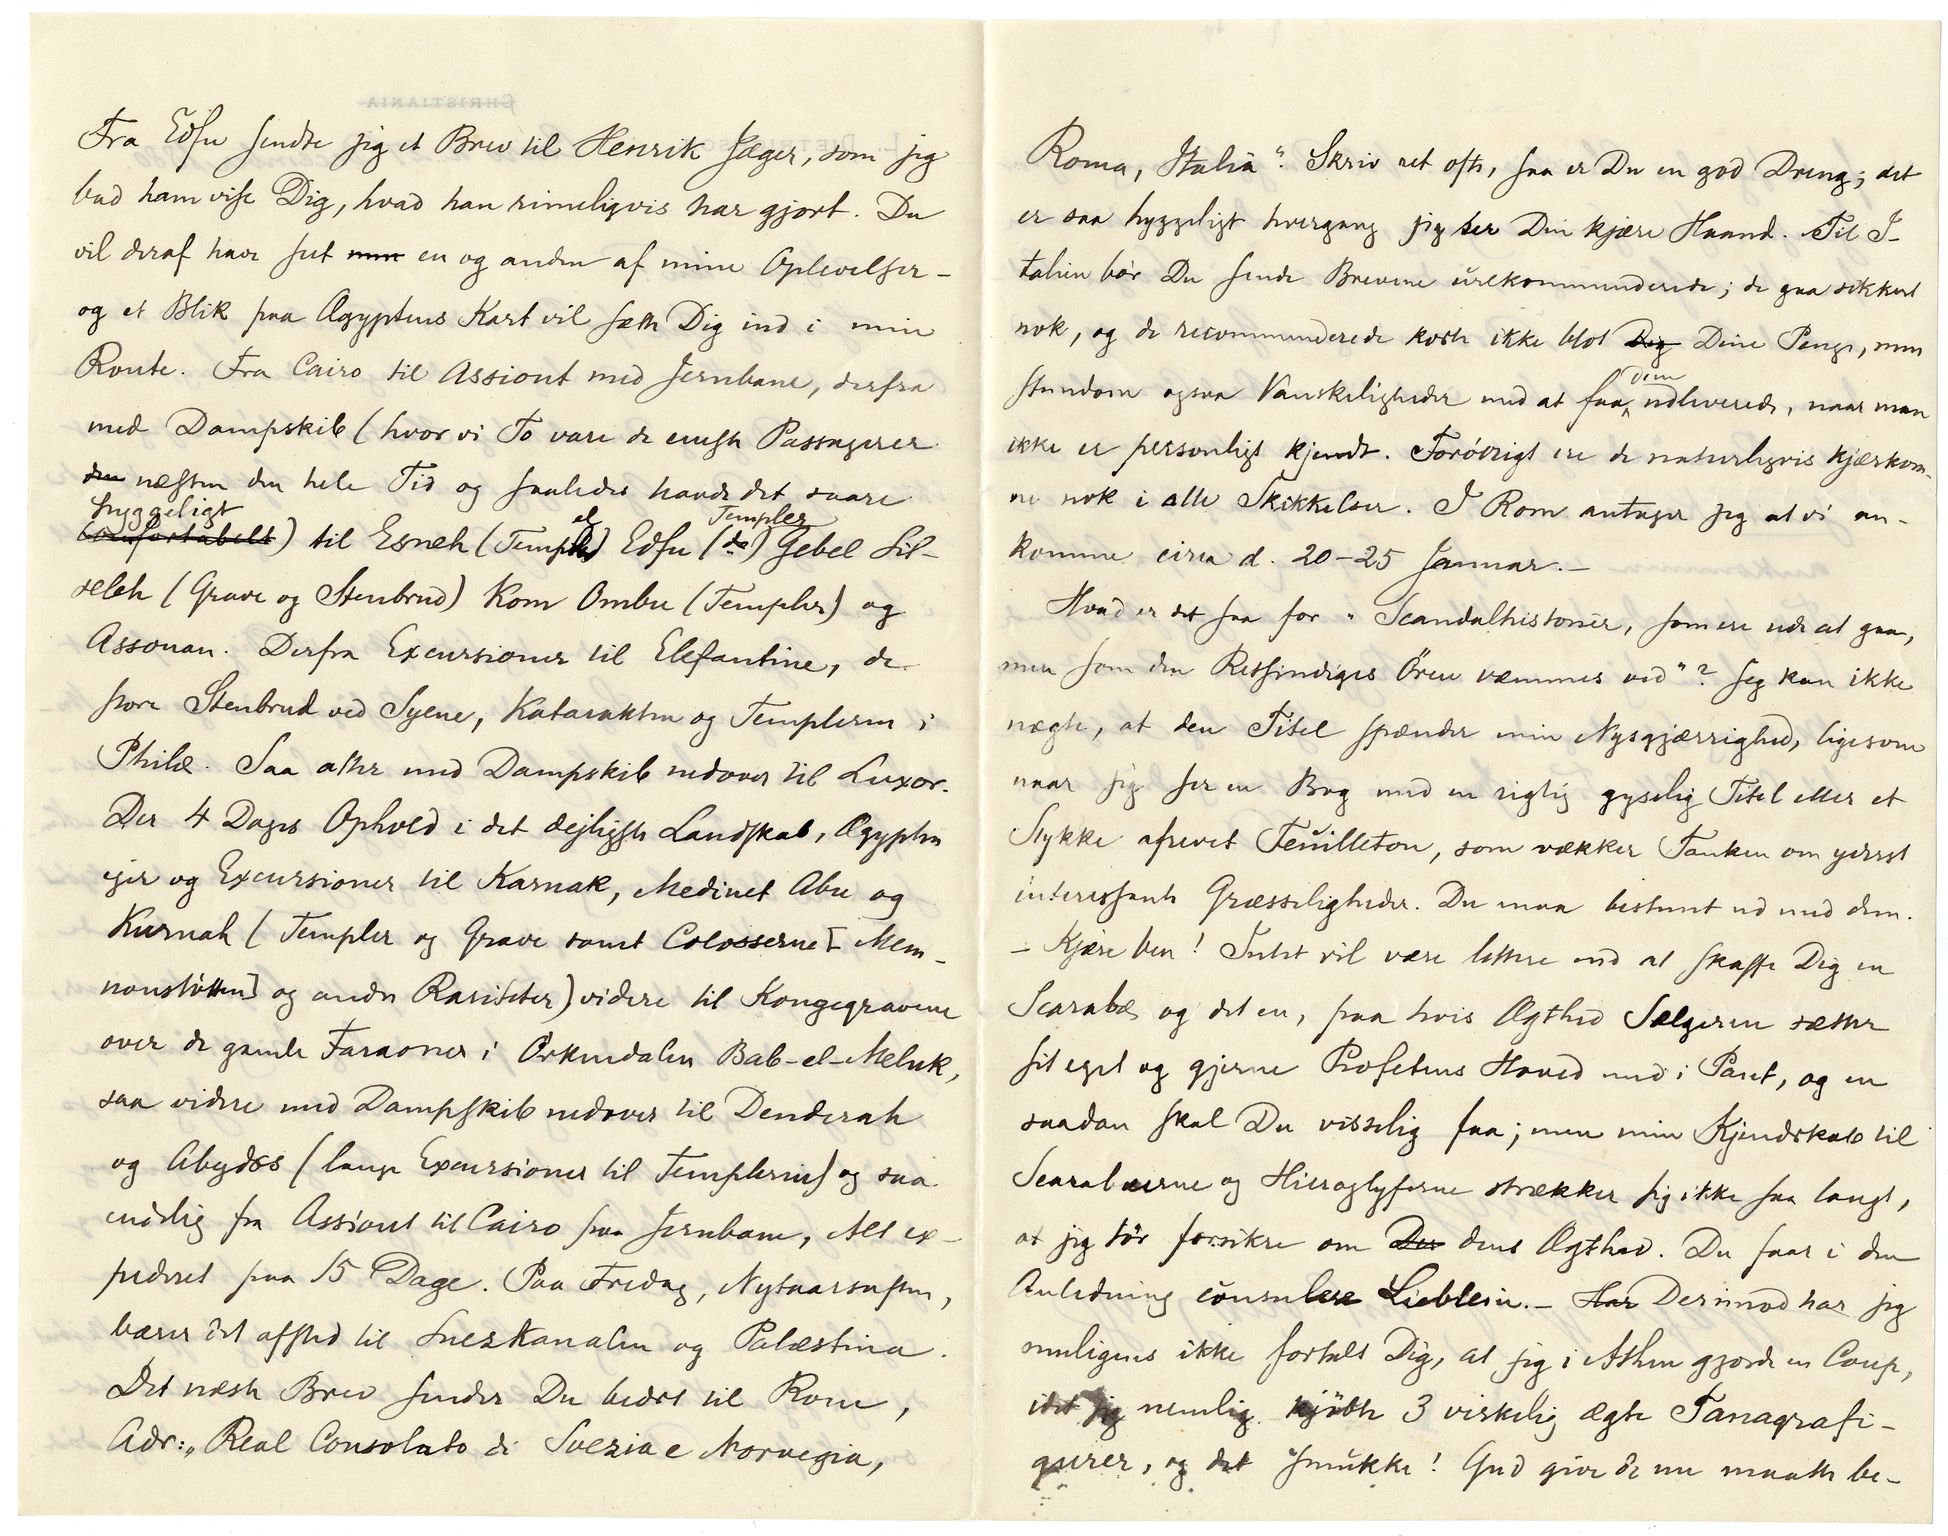 Fra Edfu sendte jeg et Brev til Henrik Jæger, som jeg
bad ham vise Dig, hvad han rimeligvis har gjort. Du
vil deraf have seet en og anden af mine Oplevelser –
og et Blik paa Ægyptens Kart vil sætte Dig ind i min
Route. Fra Cairo til Assiout med Jernbane, derfra
med Dampskib (hvor vi To vare de eneste Passagerer
den næsten den hele Tid og saaledes havde det saare
hyggeligt
comfortabelt) til Esneh (Tempel) Edfu (do Templer) Gebel Sil-
seleh (Grave og Stenbrud) Kom Ombu (Templer) og
Assouan. Derfra Excursioner til Elefantine, de
store Stenbrud ved Syene, Katarakten og Templerne i
Philæ. Saa atter med Dampskib nedover til Luxor.
Der 4 Dages Ophold i det dejligste Landskab, Ægypten
ejer og Excursioner til Karnak, Medinet Abu og
Kurnah (Templer og Grave samt Colosserne [Mem-
nonstøtten] og andre Rariteter) videre til Kongegravene
over de gamle Faraoner i Ørkendalen Bab-el-Meluk,
saa videre med Dampskib nedover til Denderah
og Abydos (lange Excursioner til Templerne) og saa
endelig fra Assiout til Cairo paa Jernbane, Alt ex-
pederet paa 15 Dage. Paa Fredag, Nytaarsaften,
bærer det afsted til Suezkanalen og Palæstina.
Det næste Brev sender Du bedst til Rom,
Adr: „Real Consolato di Svezia e Norvegia,
Roma, Italia“. Skriv ret ofte, saa er Du en god Dreng; det
er saa hyggeligt hvergang jeg ser Din kjære Haand. Til I-
talien bør Du sende Brevene urekommanderede; de gaa sikkert
nok, og de recommanderede koste ikke blot Dig Dine Penge, men
stundom ogsaa Vanskeligheder med at faa dem udleverede, naar man
ikke er personligt kjendt. Forøvrigt ere de naturligvis kjærkom-
ne nok i alle Skikkelser. I Rom antager jeg at vi an-
komme circa d. 20–25 Januar. –
Hvad er det saa for „Scandalhistorier, som ere ude at gaa,
men som den Retsindiges Øren væmmes ved“? Jeg kan ikke
nægte, at den Titel spænder min Nysgjærrighed, ligesom
naar jeg ser en Bog med en rigtig gyselig Titel eller et
Stykke afrevet Feuilleton, som vækker Tanken om yderst
interessante Græsseligheder. Du maa bestemt ud med dem.
– Kjære ven! Intet vil være lettere end at skaffe Dig en
Scarabæ og det en, paa hvis Ægthed Sælgeren sætter
sit eget og gjerne Profetens Hoved med i Pant, og en
saadan skal Du visselig faa; men min Kjendskab til
Scarabæerne og Hieroglyferne strækker sig ikke saa langt,
at jeg tør forsikre om Der dens Ægthed. Du faar i den
Anledning consulere Lieblein. – Har Derimod har jeg
muligens ikke fortalt Dig, at jeg i Athen gjorde en Coup,
idet jeg nemlig kjøbte 3 virkelig ægte Tanagrafi-
gurer, og det smukke! Gud give de nu maatte be-